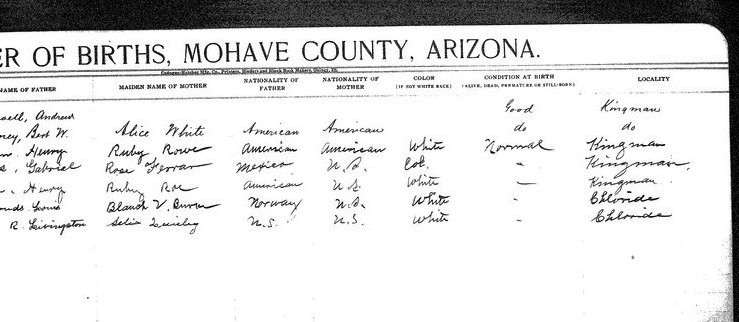 ER OF BIRTHS, MOHAVE COUNTY, ARIZONA.
NAME OF FATHER MAIDEN NAME OF MOTHER NATIONALITY OF FATHER NATIONALITY OF MOTHER COLOR (IF NOT WHITE RACE) CONDITION AT BIRTH (ALIVE, DEAD, PREMATURE OR STILL-BORN) LOCALITY
Andrew Good Kingman
Bert W. Alice White American American do do
Henry Ruby Rowe American American White Normal Kingman
Gabriel Rose Mexico U.S. Col. " Kingman.
Henry Ruby Roe American U.S. White — Kingman.
Louis V. Norway U.S. White " Chloride
R. Livingston U.S. U.S. White " Chloride